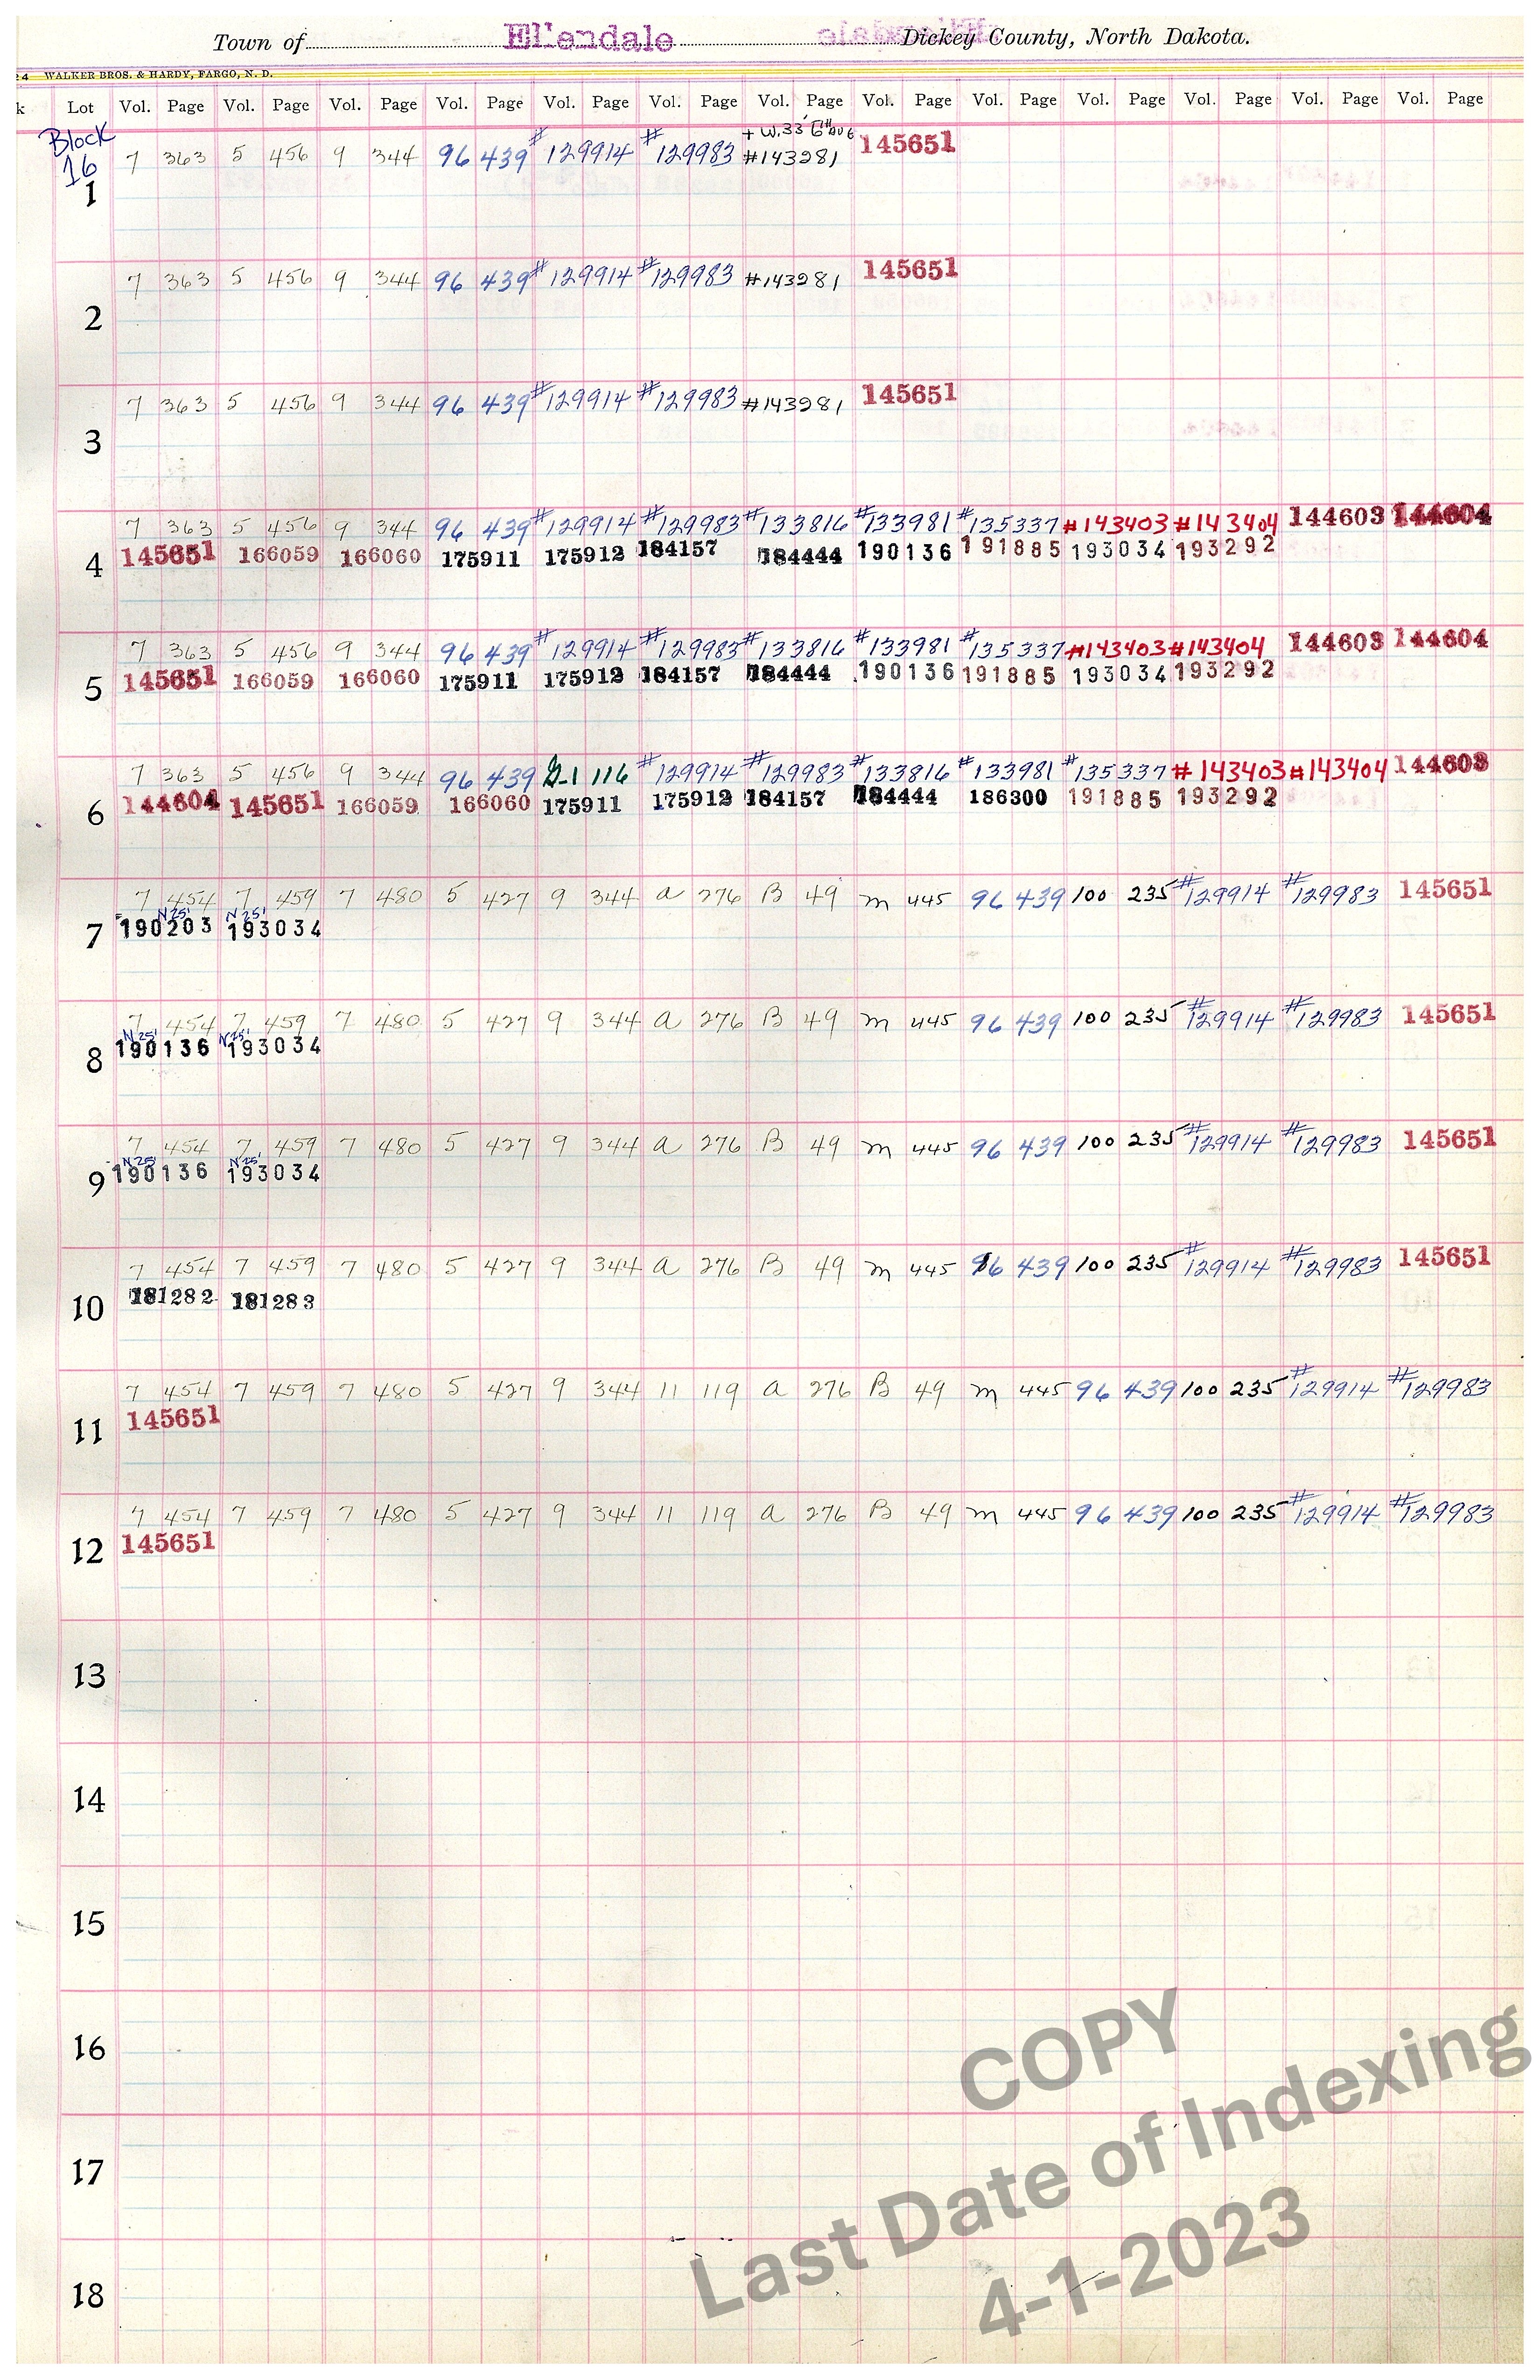 Town of Ellendale Dickey County, North Dakota.
24 WALKER BROS. & HARDY, FARGO, N. D.
k Lot Vol. Page Vol. Page Vol. Page Vol. Page Vol. Page Vol. Page Vol. Page Vol. Page Vol. Page Vol. Page Vol. Page Vol. Page Vol. Page
Block + W.33' 6th AVE
16 7 363 5 456 9 344 96 439 #129914 #129983 #143281 145651
1
7 363 5 456 9 344 96 439 #129914 #129983 #143281 145651
2
7 363 5 456 9 344 96 439 #129914 #129983 #143281 145651
3
7 363 5 456 9 344 96 439 #129914 #129983 #133816 #133981 #135337 #143403 #143404 144603 144604
4 145651 166059 166060 175911 175912 184157 184444 190136 191885 193034 193292
7 363 5 456 9 344 96 439 #129914 #129983 #133816 #133981 #135337 #143403 #143404 144603 144604
5 145651 166059 166060 175911 175912 184157 184444 190136 191885 193034 193292
7 363 5 456 9 344 96 439 G-1 116 #129914 #129983 #133816 #133981 #135337 #143403 #143404 144603
6 144604 145651 166059 166060 175911 175912 184157 184444 186300 191885 193292
7 454 7 459 7 480 5 427 9 344 a 276 B 49 m 445 96 439 100 235 #129914 #129983 145651
N 25' N 25'
7 190203 193034
7 454 7 459 7 480 5 427 9 344 a 276 B 49 m 445 96 439 100 235 #129914 #129983 145651
N 25' N 25'
8 190136 193034
7 454 7 459 7 480 5 427 9 344 a 276 B 49 m 445 96 439 100 235 #129914 #129983 145651
N 25' N 25'
9 190136 193034
7 454 7 459 7 480 5 427 9 344 a 276 B 49 m 445 96 439 100 235 #129914 #129983 145651
10 181282 181283
7 454 7 459 7 480 5 427 9 344 11 119 a 276 B 49 m 445 96 439 100 235 #129914 #129983
11 145651
7 454 7 459 7 480 5 427 9 344 11 119 a 276 B 49 m 445 96 439 100 235 #129914 #129983
12 145651
13
14
15
16
17
18
COPY
Last Date of Indexing
4-1-2023